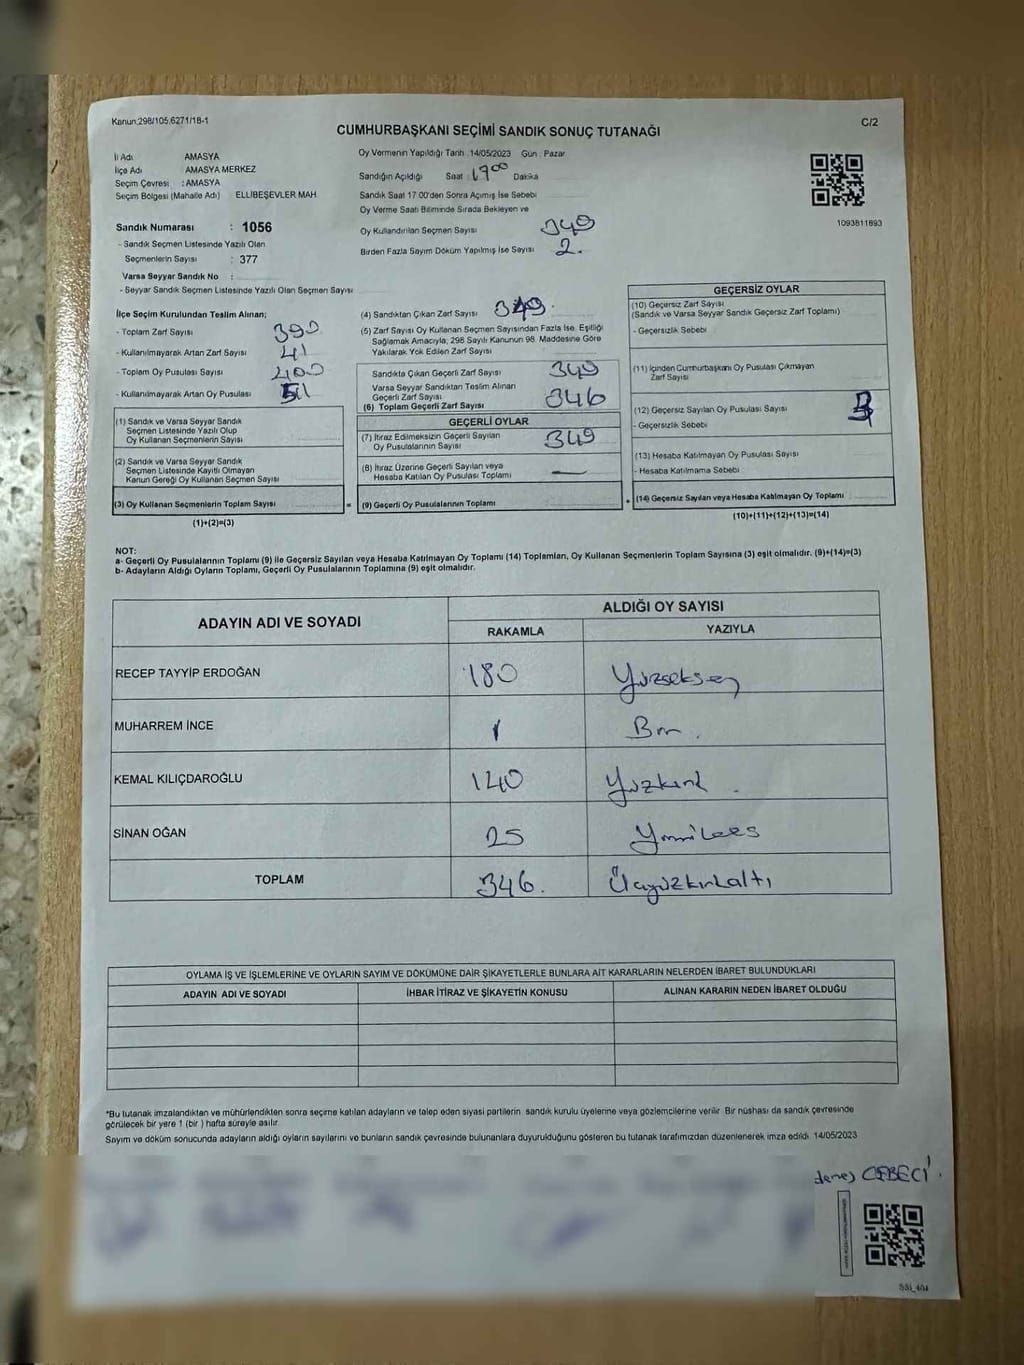 Kanun:298/105,6271/18-1
C/2
CUMHURBAŞKANI SEÇİMİ SANDIK SONUÇ TUTANAĞI
İl Adı AMASYA
İlçe Adı AMASYA MERKEZ
Seçim Çevresi : AMASYA
Seçim Bölgesi (Mahalle Adı) ELLİBEŞEVLER MAH.
Sandık Numarası : 1056
- Sandık Seçmen Listesinde Yazılı Olan
Seçmenlerin Sayısı : 377
Varsa Seyyar Sandık No :
- Seyyar Sandık Seçmen Listesinde Yazılı Olan Seçmen Sayısı
Oy Vermenin Yapıldığı Tarih : 14/05/2023 Gün : Pazar
Sandığın Açıldığı Saat : 17:00 Dakika
Sandık Saat 17.00'den Sonra Açımış İse Sebebi
Oy Verme Saati Bitiminde Sırada Bekleyen ve
Oy Kullandırılan Seçmen Sayısı 349
Birden Fazla Sayım Döküm Yapılmış İse Sayısı 2.
1093811893
İlçe Seçim Kurulundan Teslim Alınan;
- Toplam Zarf Sayısı 390
- Kullanılmayarak Artan Zarf Sayısı 41
- Toplam Oy Pusulası Sayısı 400
- Kullanılmayarak Artan Oy Pusulası 51
(1) Sandık ve Varsa Seyyar Sandık
Seçmen Listesinde Yazılı Olup
Oy Kullanan Seçmenlerin Sayısı
(2) Sandık ve Varsa Seyyar Sandık
Seçmen Listesinde Kayıtlı Olmayan
Kanun Gereği Oy Kullanan Seçmen Sayısı
(3) Oy Kullanan Seçmenlerin Toplam Sayısı
(1)+(2)=(3)
(4) Sandıktan Çıkan Zarf Sayısı 349
(5) Zarf Sayısı Oy Kullanan Seçmen Sayısından Fazla İse, Eşitliği
Sağlamak Amacıyla, 298 Sayılı Kanunun 98. Maddesine Göre
Yakılarak Yok Edilen Zarf Sayısı
Sandıkta Çıkan Geçerli Zarf Sayısı 349
Varsa Seyyar Sandıktan Teslim Alınan
Geçerli Zarf Sayısı
(6) Toplam Geçerli Zarf Sayısı 346
GEÇERLİ OYLAR
(7) İtiraz Edilmeksizin Geçerli Sayılan
Oy Pusulalarının Sayısı 349
(8) İtiraz Üzerine Geçerli Sayılan veya
Hesaba Katılan Oy Pusulası Toplamı —
= (9) Geçerli Oy Pusulalarının Toplamı
GEÇERSİZ OYLAR
(10) Geçersiz Zarf Sayısı
(Sandık ve Varsa Seyyar Sandık Geçersiz Zarf Toplamı)
- Geçersizlik Sebebi
(11) İçinden Cumhurbaşkanı Oy Pusulası Çıkmayan
Zarf Sayısı
(12) Geçersiz Sayılan Oy Pusulası Sayısı 3
- Geçersizlik Sebebi
(13) Hesaba Katılmayan Oy Pusulası Sayısı
- Hesaba Katılmama Sebebi
+ (14) Geçersiz Sayılan veya Hesaba Katılmayan Oy Toplamı
(10)+(11)+(12)+(13)=(14)
NOT:
a- Geçerli Oy Pusulalarının Toplamı (9) ile Geçersiz Sayılan veya Hesaba Katılmayan Oy Toplamı (14) Toplamları, Oy Kullanan Seçmenlerin Toplam Sayısına (3) eşit olmalıdır. (9)+(14)=(3)
b- Adayların Aldığı Oyların Toplamı, Geçerli Oy Pusulalarının Toplamına (9) eşit olmalıdır.
ADAYIN ADI VE SOYADI
ALDIĞI OY SAYISI
RAKAMLA YAZIYLA
RECEP TAYYİP ERDOĞAN 180 Yüzseksen
MUHARREM İNCE 1 Bir.
KEMAL KILIÇDAROĞLU 140 Yüzkırk .
SİNAN OĞAN 25 Yirmibeş
TOPLAM 346. Üçyüzkırkaltı
OYLAMA İŞ VE İŞLEMLERİNE VE OYLARIN SAYIM VE DÖKÜMÜNE DAİR ŞİKAYETLERLE BUNLARA AİT KARARLARIN NELERDEN İBARET BULUNDUKLARI
ADAYIN ADI VE SOYADI İHBAR İTİRAZ VE ŞİKAYETİN KONUSU ALINAN KARARIN NEDEN İBARET OLDUĞU
*Bu tutanak imzalandıktan ve mühürlendikten sonra seçime katılan adayların ve talep eden siyasi partilerin sandık kurulu üyelerine veya gözlemcilerine verilir. Bir nüshası da sandık çevresinde
görülecek bir yere 1 (bir) hafta süreyle asılır.
Sayım ve döküm sonucunda adayların aldığı oyların sayılarını ve bunların sandık çevresinde bulunanlara duyurulduğunu gösteren bu tutanak tarafımızdan düzenlenerek imza edildi. 14/05/2023
CEBECİ